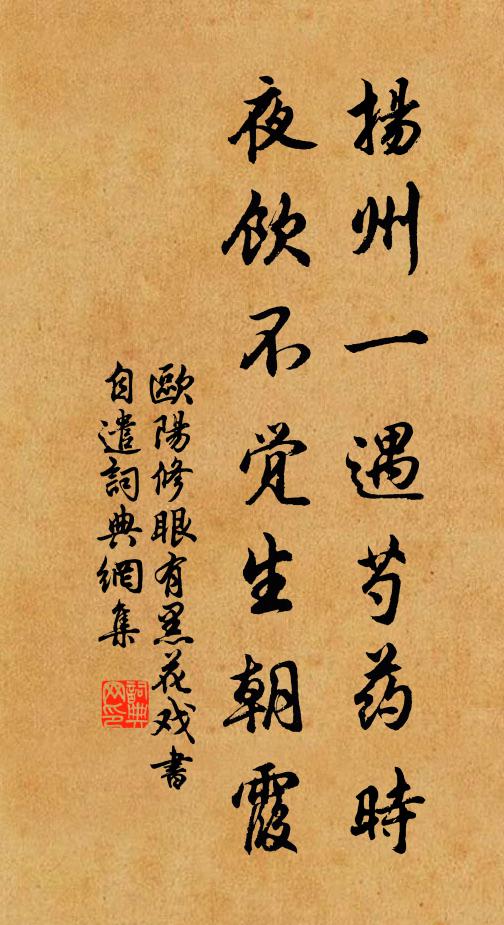 揚州一遇芍药時
夜飲不觉生朝霞
歐陽修眼有黑花戏書
自遣詞典網集
詞典网印